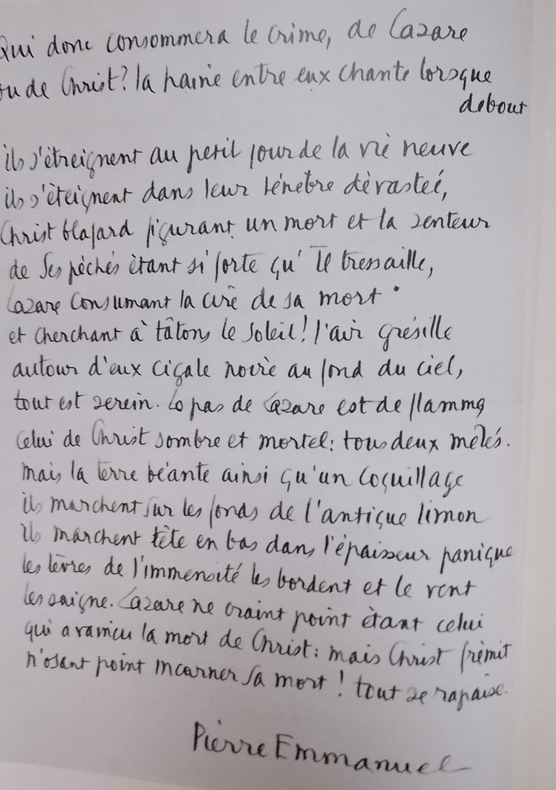 Qui donc consommera le crime, de Lazare
ou de Christ? la haine entre eux chante lorsque
debout
ils s'étreignent au petit jour de la vie neuve
ils s'éteignent dans leur ténèbre dévastée,
Christ blafard figurant un mort et la senteur
de Ses péchés étant si forte qu'Il tressaille,
Lazare consumant la cire de sa mort
et cherchant à tâtons le soleil! l'air grésille
autour d'eux cigale noire au fond du ciel,
tout est serein. Le pas de Lazare est de flamme
celui de Christ sombre et mortel: tous deux mêlés.
mais la terre béante ainsi qu'un coquillage
ils marchent sur les fonds de l'antique limon
ils marchent tête en bas dans l'épaisseur panique
les lèvres de l'immensité les bordent et le vent
les saigne. Lazare ne craint point étant celui
qui a vaincu la mort de Christ: mais Christ frémit
n'osant point incarner Sa mort! tout se rapaise.
Pierre Emmanuel